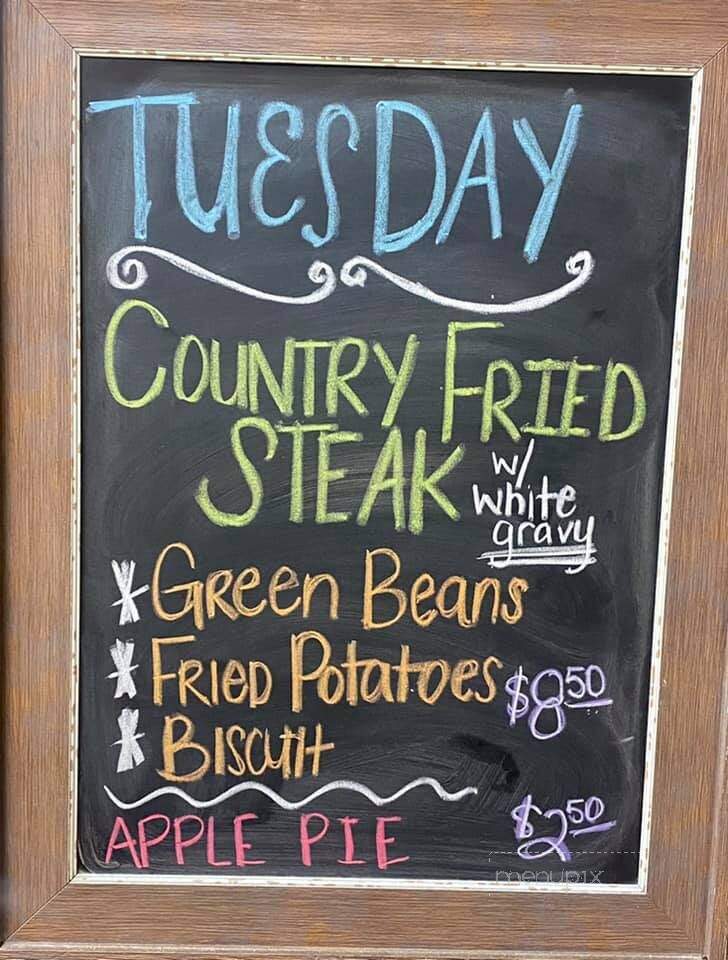 TUESDAY
COUNTRY FRIED
STEAK w/
white
gravy
* Green Beans
* FRIED Potatoes $8.50
* Biscuit
APPLE PIE $2.50
menupix